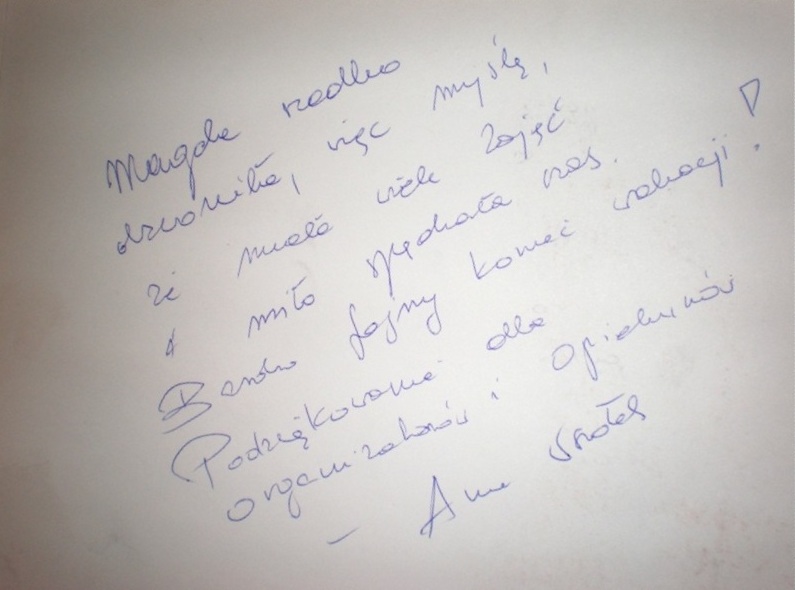 Magda rzadko
dzwoniła, więc myślę,
że miała wiele zajęć
i miło spędzała czas.
Bardzo fajny koniec wakacji!
Podziękowania dla
organizatorów i opiekunów
– Anna